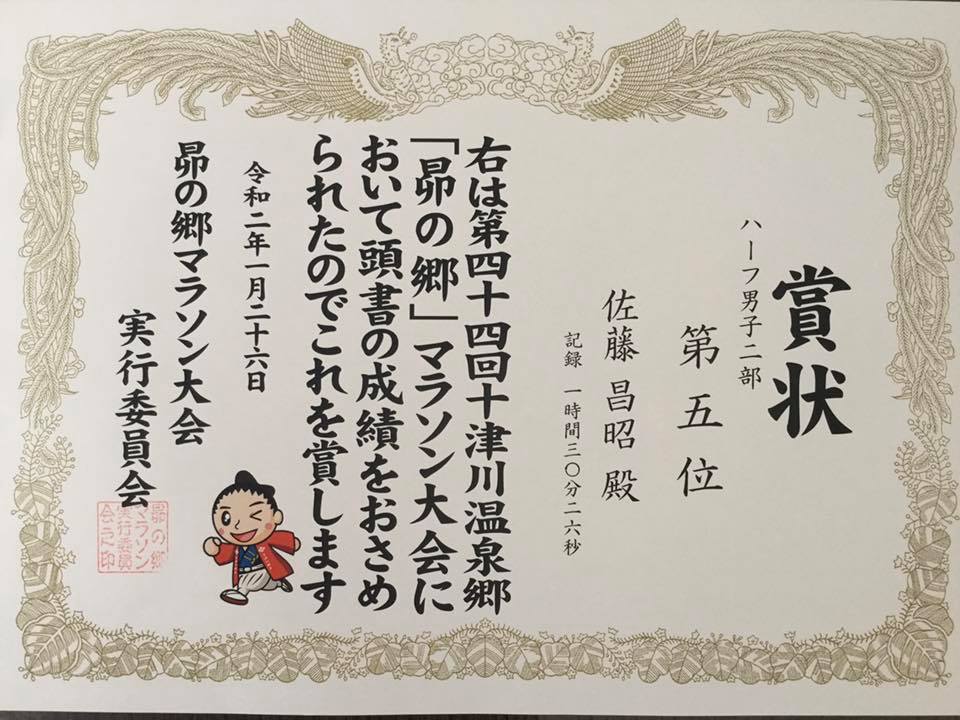 賞状
ハーフ男子二部
第五位
佐藤 昌昭 殿
記録 一時間三〇分二六秒
右は第四十四回十津川温泉郷
「昴の郷」マラソン大会に
おいて頭書の成績をおさめ
られたのでこれを賞します
令和二年一月二十六日
昴の郷マラソン大会
実行委員会
昴の郷
マラソン
実行委員
会之印